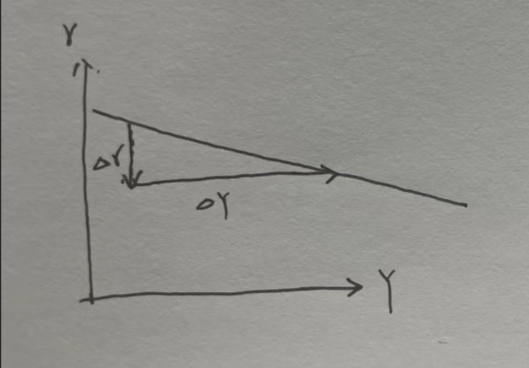 r
Δr
ΔY
Y